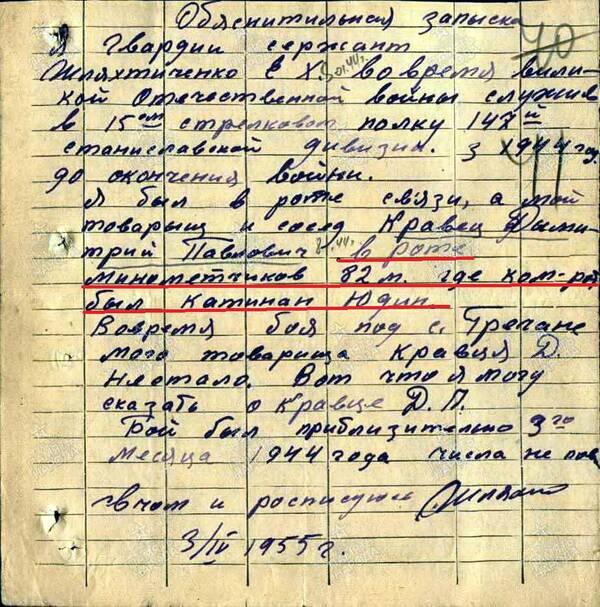 Обяснительная запыска
70
Я Гвардии сержант
Шляхтиченко Е Х. во время вели-
кой Отечественной войны служив
в 15ом стрелковом полку 147й
станиславской дивизии. з 1944 год
до окончения войни.
Я был в роте связи, а мой
товарыщ и сосед Кравец Дими-
трий Павлович в роте
минометчиков 82м. где ком-ром
был капинан Юдин.
Вовремя боя под с. Гречане
мого товарища Кравця Д.
нестало. Вот что я могу
сказать о Кравце Д. П.
Бой был приблизительно 3го
месяца 1944 года числа не пом
вчом и росписуюсь
3/IV 1955 г.